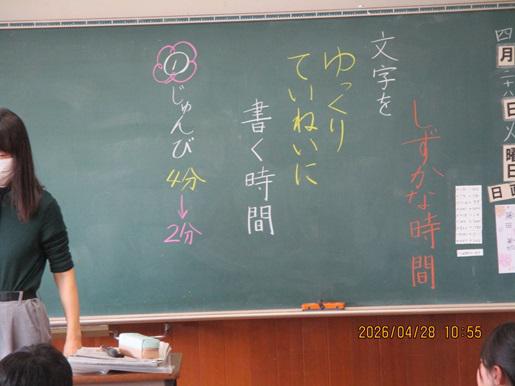 四月二十八日火曜日
日直
しずかな時間
文字を
ゆっくり
ていねいに
書く時間
①じゅんび 4分→2分
2026/04/28 10:55